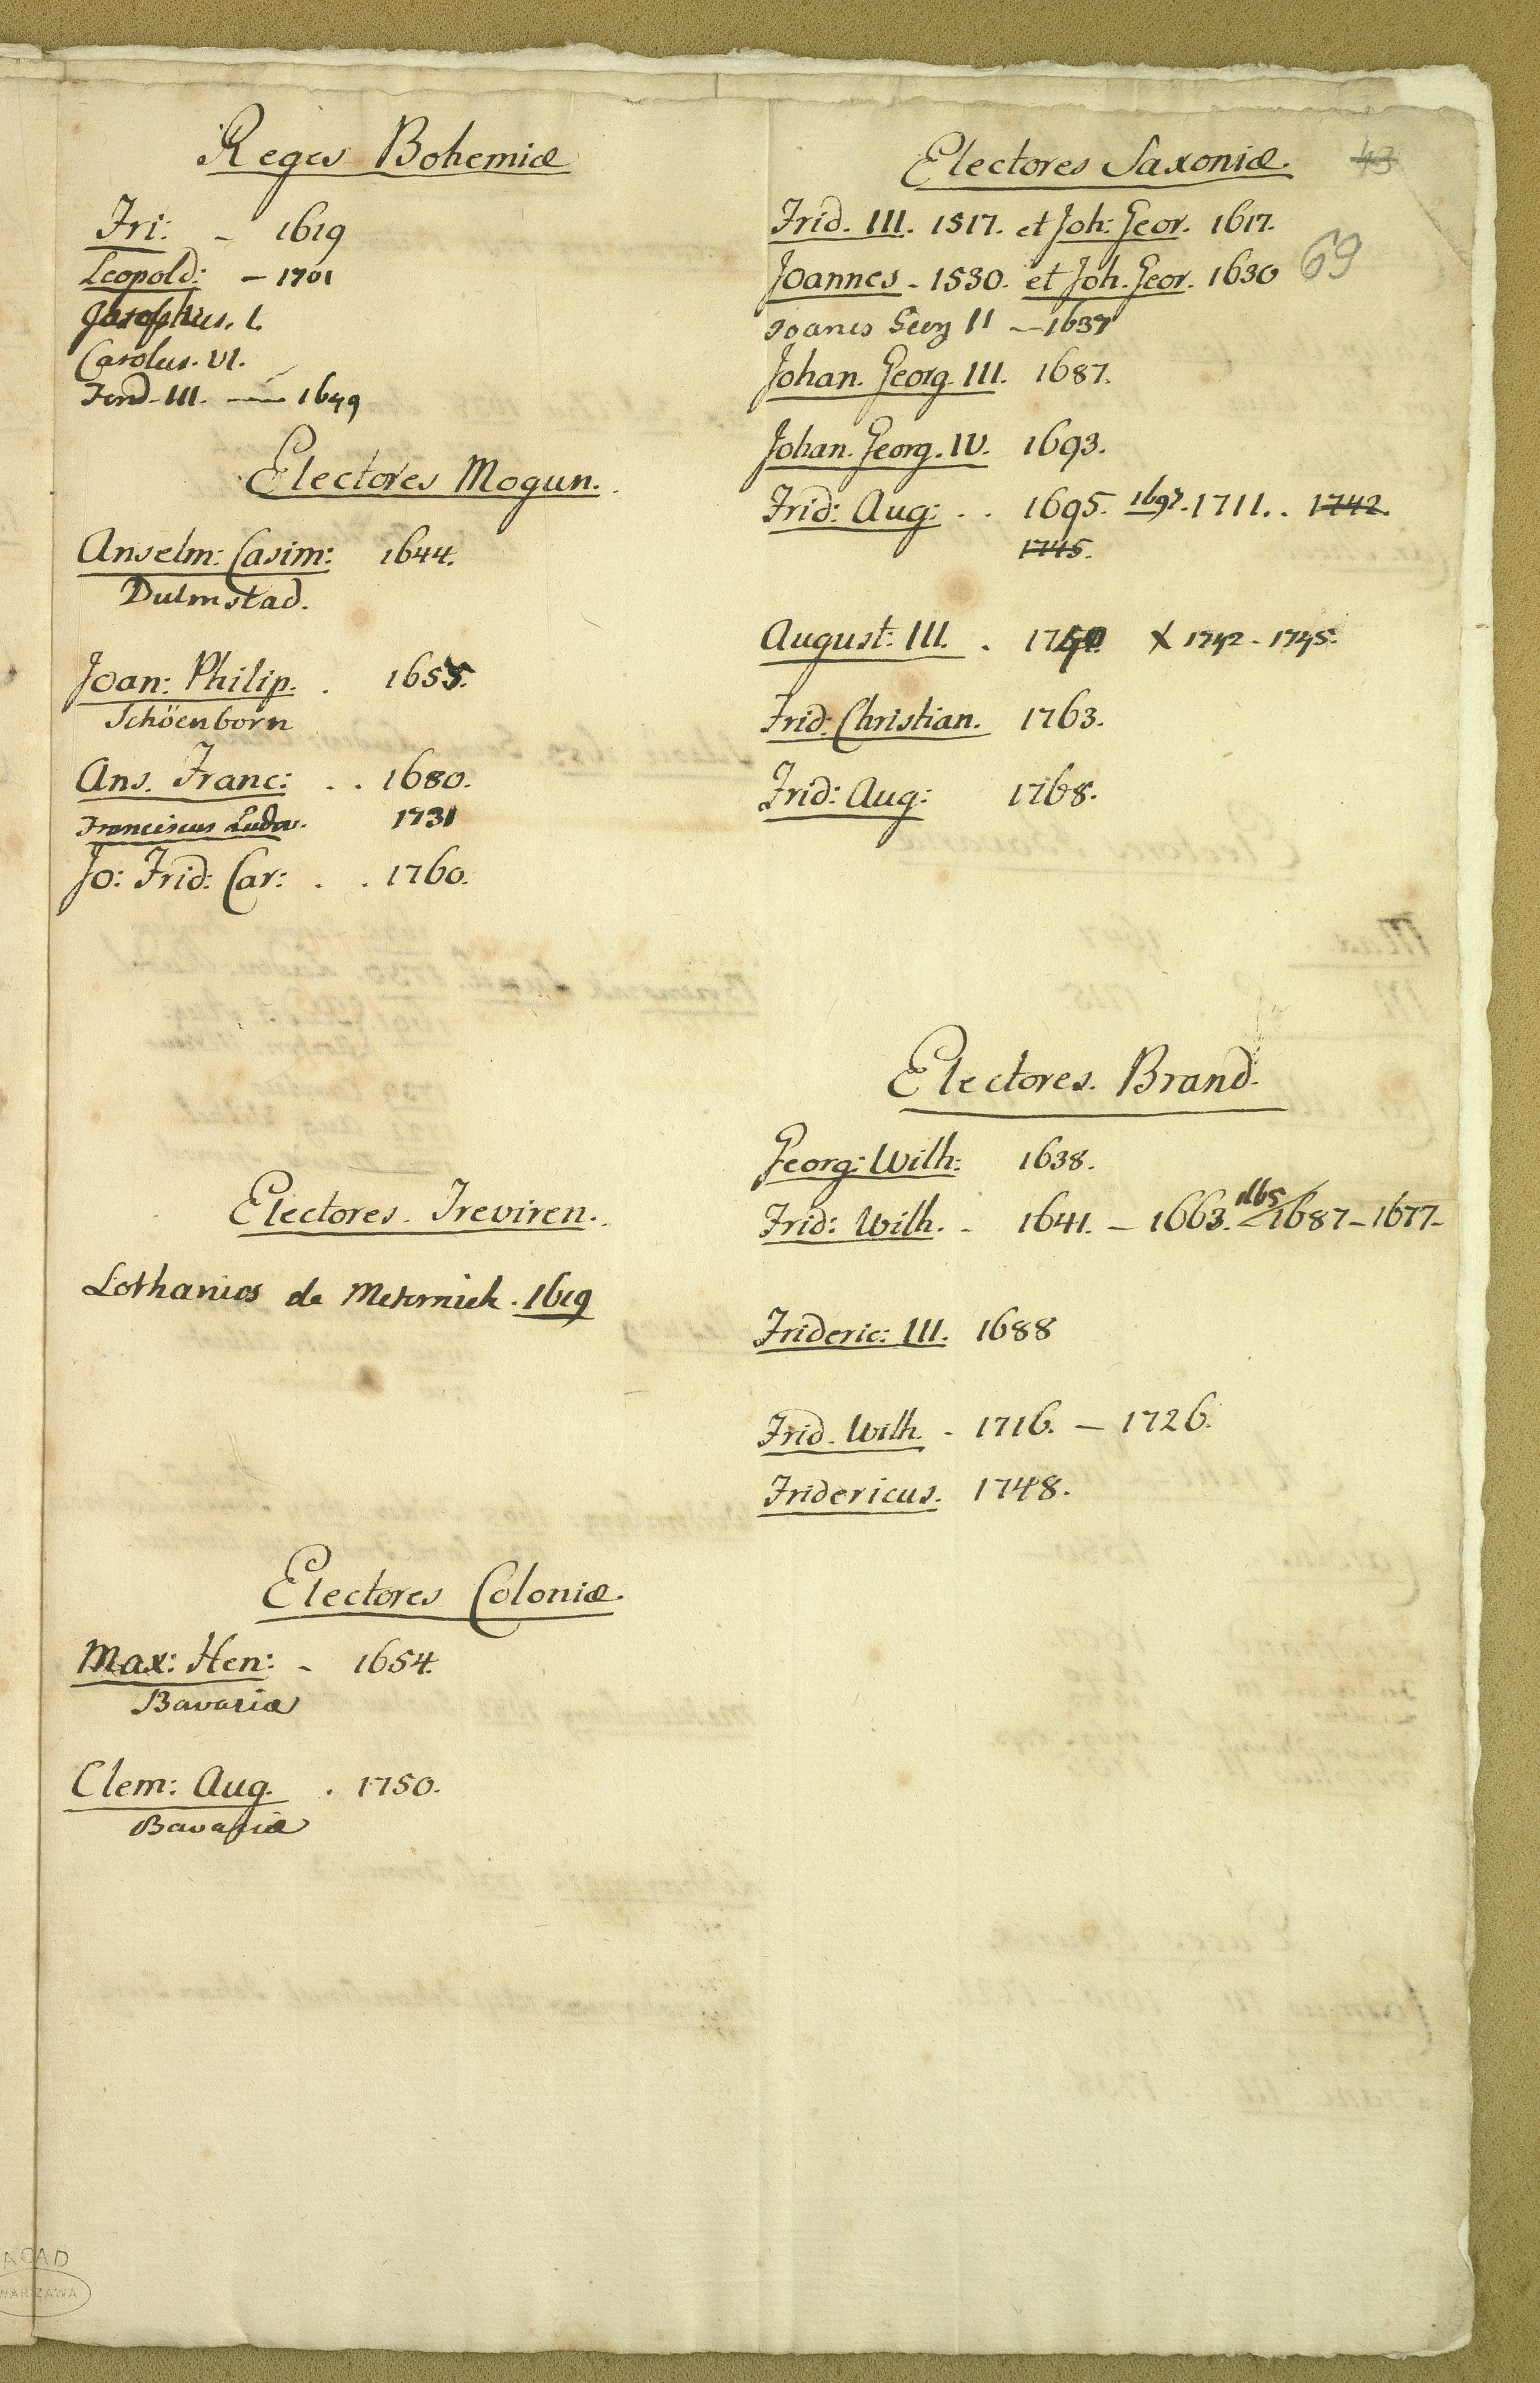 Reges Bohemiæ
Fri: - 1619
Leopold: - 1701
Josephus. I.
Carolus. VI.
Ferd. III. — 1649
Electores Mogun.
Anselm: Casim: 1644.
Dulmstad.
Joan: Philip. . 1655.
Schöenborn
Ans. Franc: . . 1680.
Franciscus Ludov. 1731
Jo: Frid: Car: . . 1760.
Electores. Treviren.
Lotharius de Meternich. 1619
Electores Coloniæ.
Max: Hen: - 1654.
Bavariæ
Clem: Aug. . 1750.
Bavariæ
Electores Saxoniæ. 43
Frid. III. 1517. et Joh: Geor. 1617.
69
Joannes - 1530. et Joh. Geor. 1630
Joanes Georg II — 1657
Johan. Georg. III. 1687.
Johan. Georg. IV. 1693.
Frid: Aug: . . 1695. 1697. 1711. . 1742.
1745.
August: III. . X 1742 - 1745.
Frid: Christian. 1763.
Frid: Aug: 1768.
Electores. Brand.
Georg: Wilh: 1638.
Frid: Wilh. - 1641. - 1663. 1687 - 1677.
Frideric: III. 1688
Frid. Wilh. - 1716. - 1726.
Fridericus. 1748.
ACAD
WARSZAWA